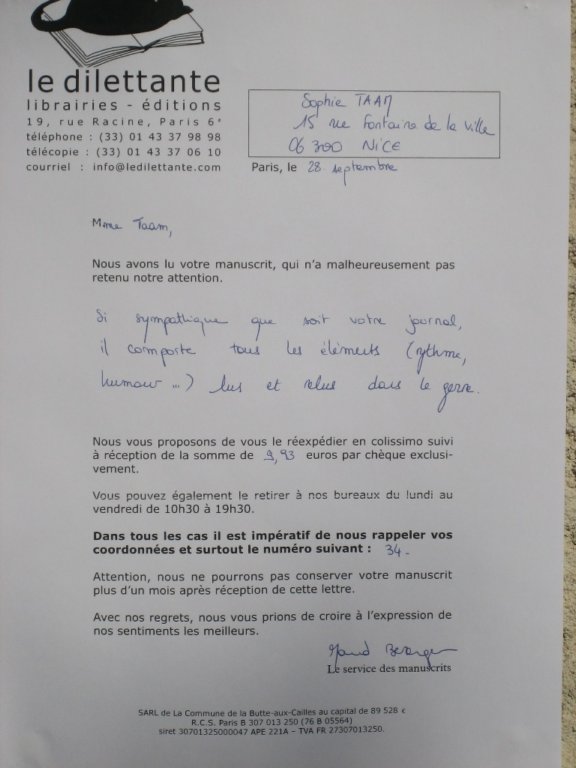 le dilettante
librairies - éditions
19, rue Racine, Paris 6e
téléphone : (33) 01 43 37 98 98
télécopie : (33) 01 43 37 06 10
courriel : info@ledilettante.com
Sophie TAAM
15 rue Fontaine de la ville
06300 NICE
Paris, le 28 septembre
Mme Taam,
Nous avons lu votre manuscrit, qui n'a malheureusement pas
retenu notre attention.
Si sympathique que soit votre journal,
il comporte tous les éléments (rythme,
humour ...) lus et relus dans le genre.
Nous vous proposons de vous le réexpédier en colissimo suivi
à réception de la somme de 9,93 euros par chèque exclusi-
vement.
Vous pouvez également le retirer à nos bureaux du lundi au
vendredi de 10h30 à 19h30.
Dans tous les cas il est impératif de nous rappeler vos
coordonnées et surtout le numéro suivant : 34.
Attention, nous ne pourrons pas conserver votre manuscrit
plus d'un mois après réception de cette lettre.
Avec nos regrets, nous vous prions de croire à l'expression de
nos sentiments les meilleurs.
Le service des manuscrits
SARL de La Commune de la Butte-aux-Cailles au capital de 89 528 €
R.C.S. Paris B 307 013 250 (76 B 05564)
siret 30701325000047 APE 221A - TVA FR 27307013250.